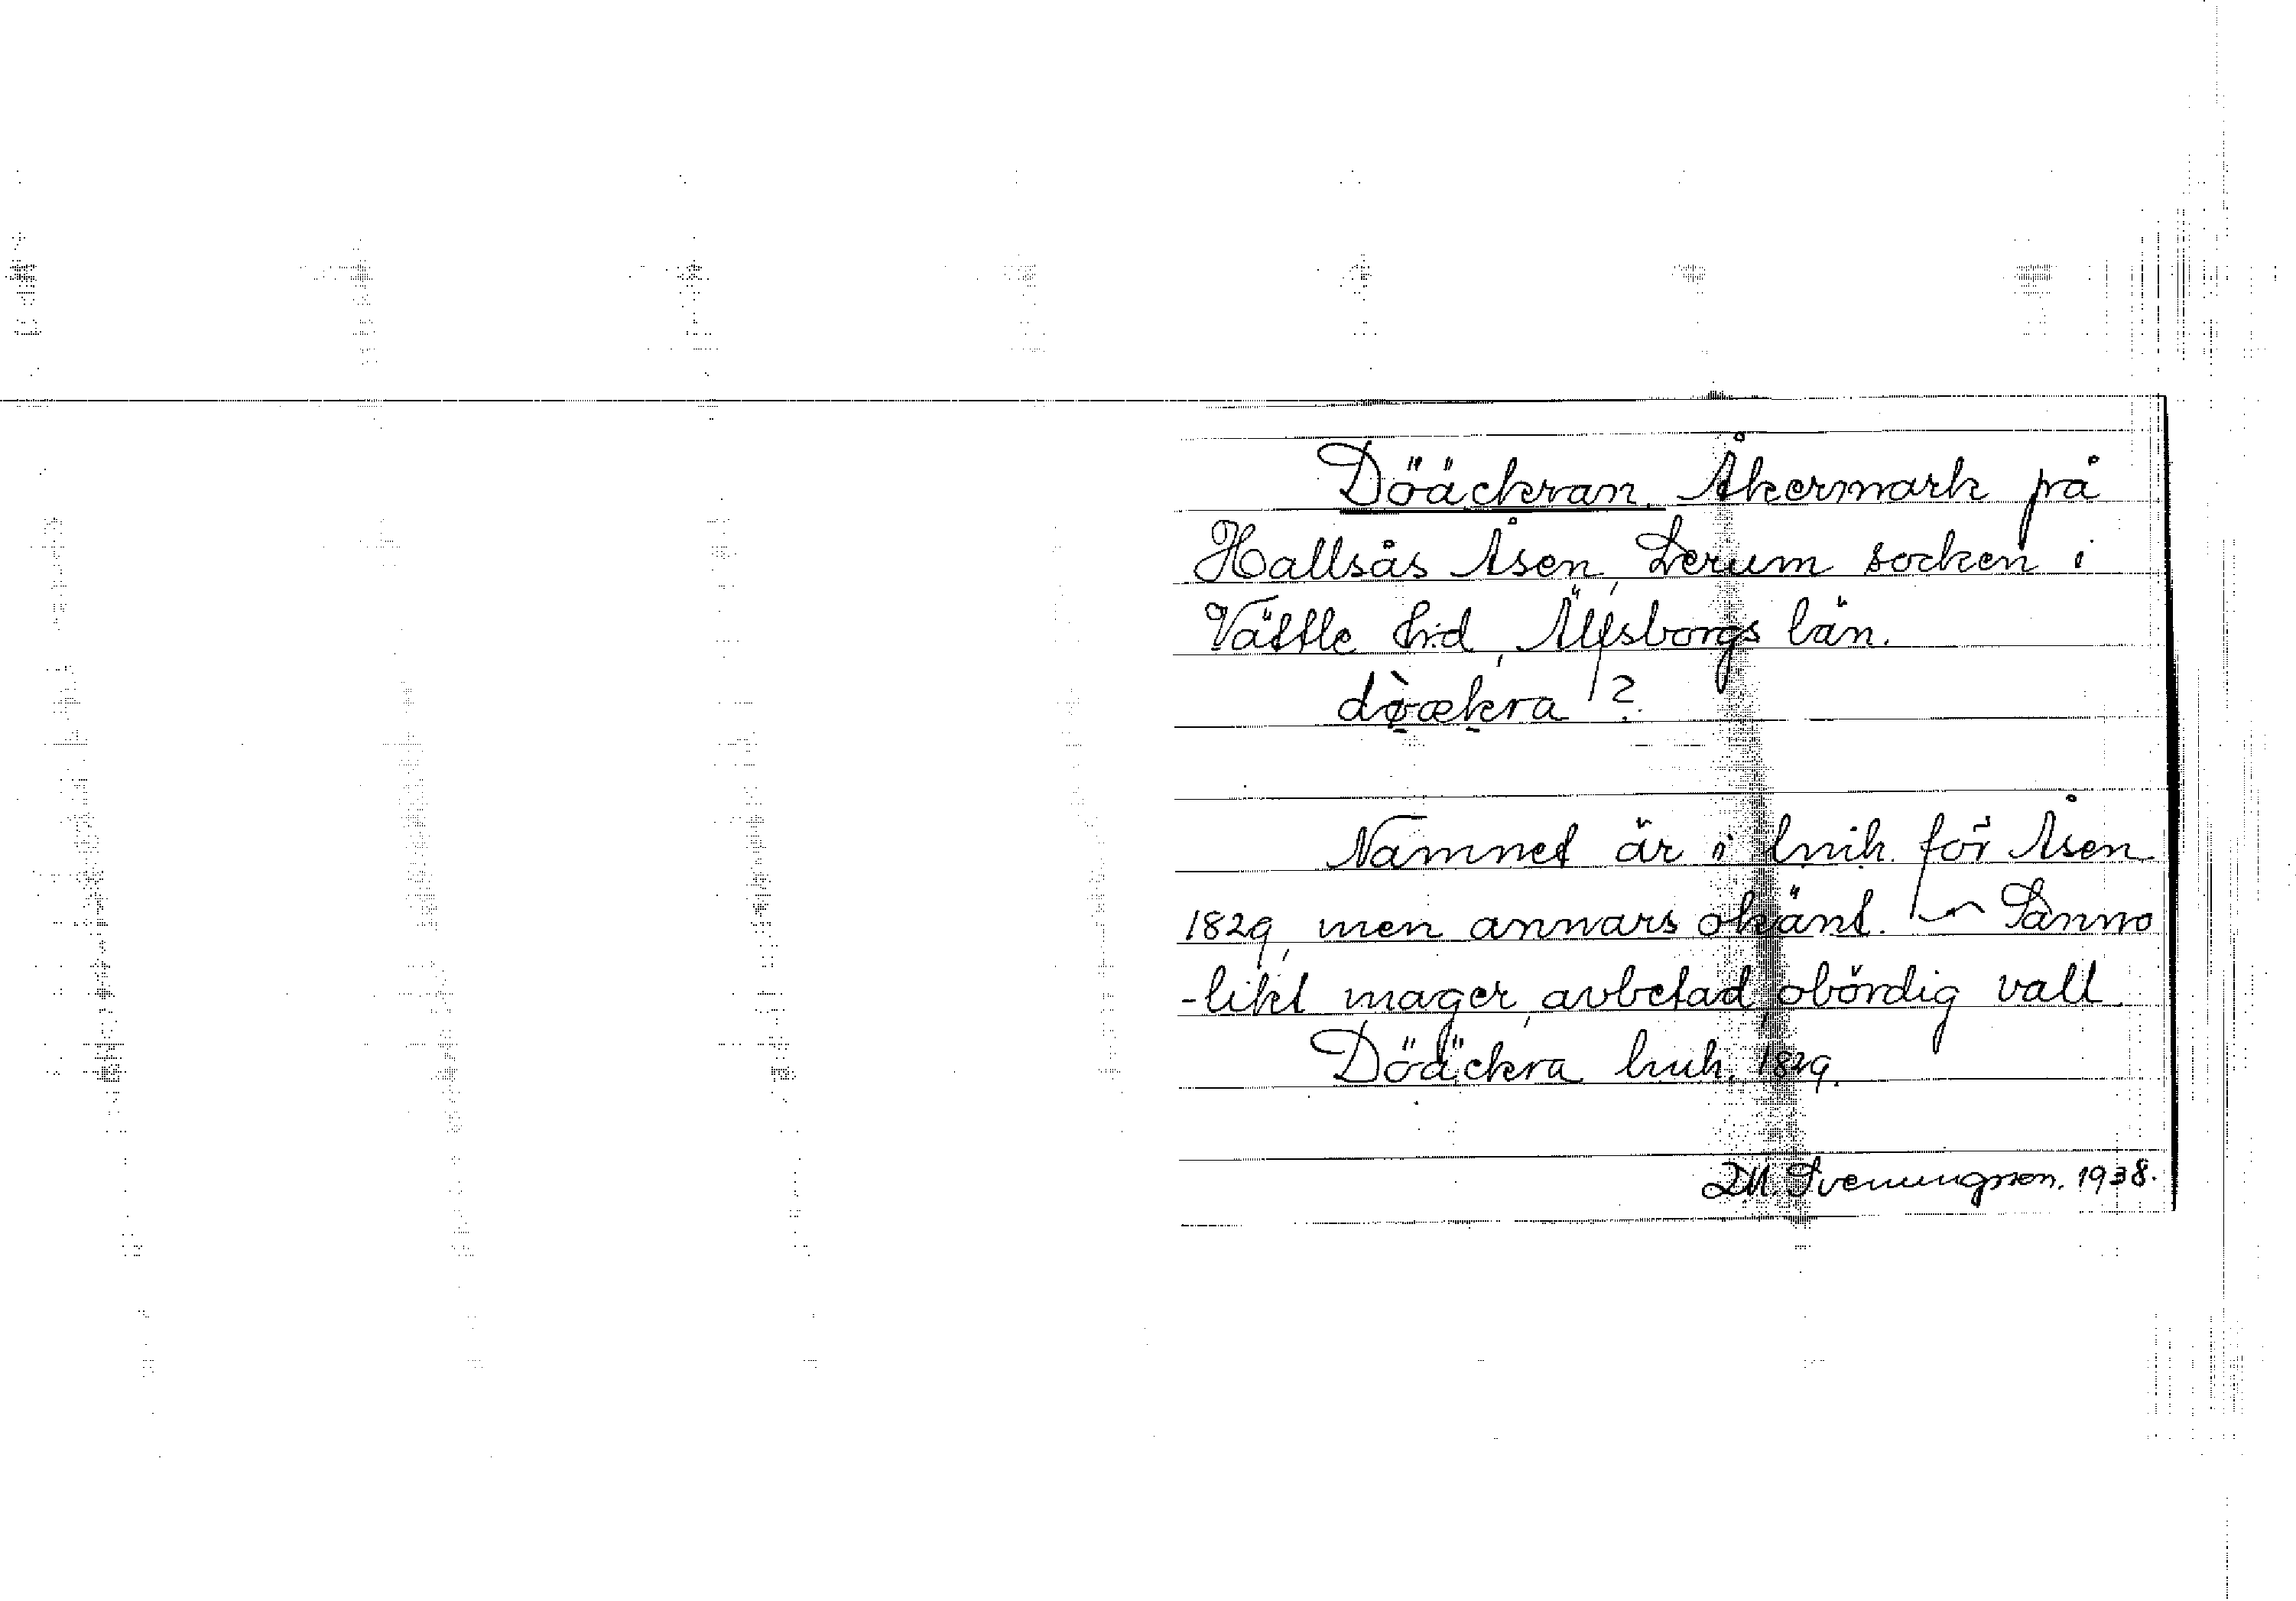 Döäckran. Åkermark på
Hallsås Åsen, Lerum socken i
Vättle h:d, Älfsborgs län.
dø̀ækra ?
Namnet är i lnih. för Åsen
1829, men annars okänt. — Sanno
-likt mager, avbetad, obördig vall.
Döäckra lnih. 1829.
D.M. Svenungsson. 1938.